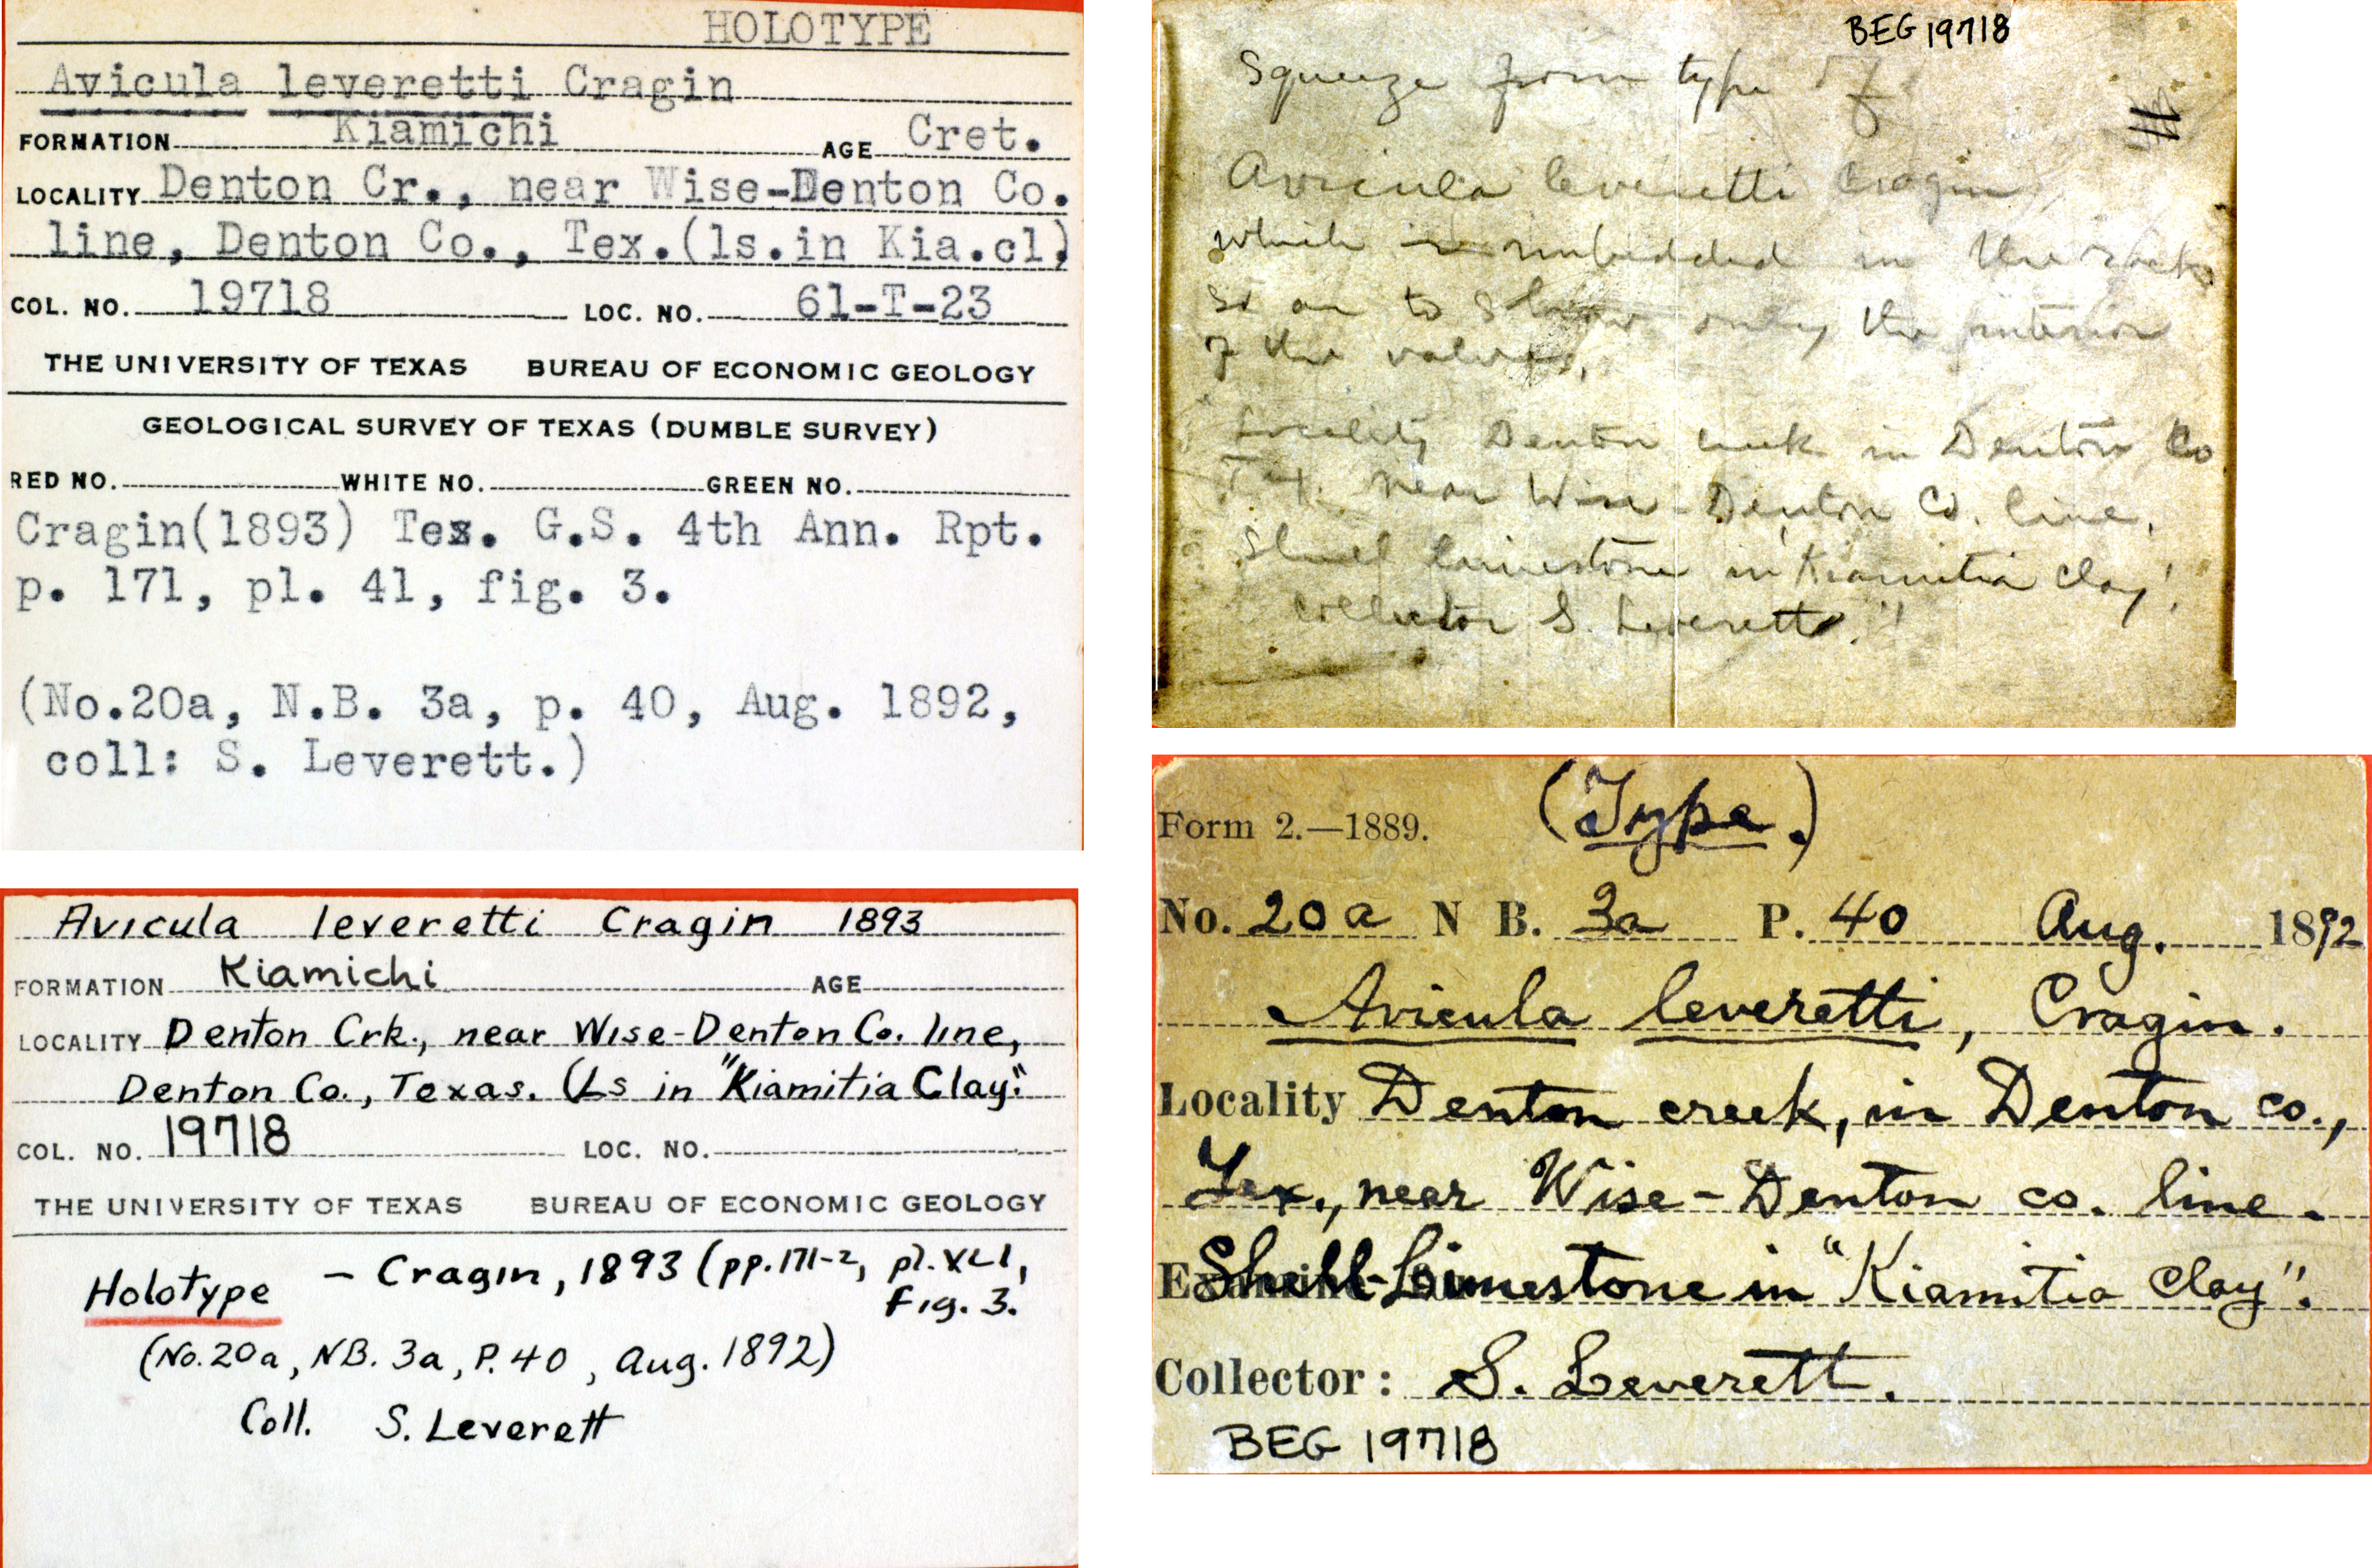 HOLOTYPE
Avicula leveretti Cragin
FORMATION Kiamichi AGE Cret.
LOCALITY Denton Cr., near Wise-Denton Co.
line, Denton Co., Tex.(ls.in Kia.cl)
COL. NO. 19718 LOC. NO. 61-T-23
THE UNIVERSITY OF TEXAS BUREAU OF ECONOMIC GEOLOGY
GEOLOGICAL SURVEY OF TEXAS (DUMBLE SURVEY)
RED NO. WHITE NO. GREEN NO.
Cragin(1893) Tex. G.S. 4th Ann. Rpt.
p. 171, pl. 41, fig. 3.
(No.20a, N.B. 3a, p. 40, Aug. 1892,
coll: S. Leverett.)
Avicula leveretti Cragin 1893
FORMATION Kiamichi AGE
LOCALITY Denton Crk., near Wise-Denton Co. line,
Denton Co., Texas. (Ls in "Kiamitia Clay".
COL. NO. 19718 LOC. NO.
THE UNIVERSITY OF TEXAS BUREAU OF ECONOMIC GEOLOGY
Holotype - Cragin, 1893 (pp. 171-2, pl. XLI,
Fig. 3.
(No. 20a, NB. 3a, P. 40, Aug. 1892)
Coll. S. Leverett
BEG 19718
Squeeze from type of
Avicula leveretti Cragin
which is imbedded in the rock
so as to show only the interior
of the valves.
Locality Denton creek in Denton Co
Tex. near Wise-Denton Co. line.
Shell limestone in "Kiamitia clay".
Collector S. Leverett."
Form 2.—1889. (Type.)
No. 20a N B. 3a P. 40 Aug. 1892
Avicula leveretti, Cragin.
Locality Denton creek, in Denton co.,
Tex., near Wise-Denton co. line.
Shell-Limestone in "Kiamitia Clay".
Collector: S. Leverett.
BEG 19718